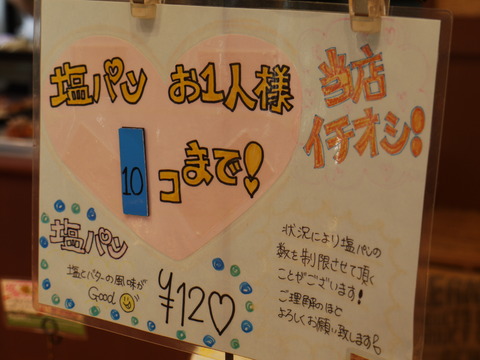 塩パン お1人様
10コまで!
当店
イチオシ!
塩パン
塩とバターの風味が
Good
¥120
状況により塩パンの
数を制限させて頂く
ことがございます!
ご理解のほど
よろしくお願い致します。